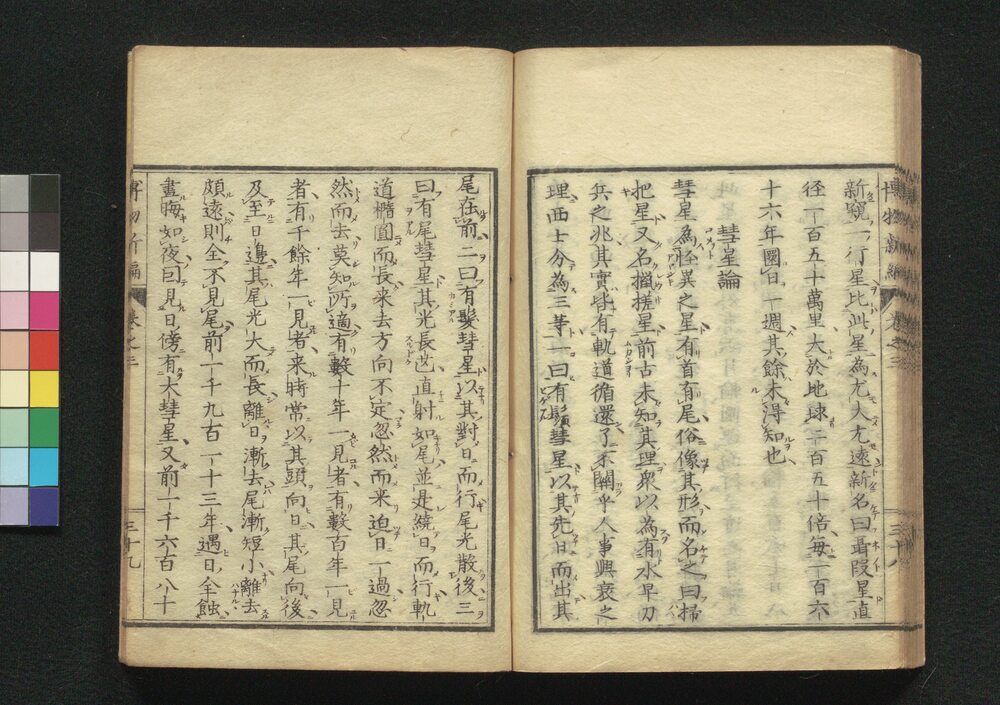 新窺一行星比此星為尤大尤遠新名曰聶叚星直
径一百五十萬里大於地球二百五十倍每一百六
十六年圜日一週其餘未得知也
彗星論
彗星為怪異之星有首有尾俗像其形而名之曰掃
把星又名攙搓星前古未知其理衆以為有水旱刀
兵之兆其實皆有軌道循還了不關乎人事興衰之
理西士分為三等一曰有鬚彗星以其先日而出其
尾在前二曰有髮彗星以其對日而行尾光散後三
曰有尾彗星其光長岂直射如尾並是繞日而行軌
道橢圓而長来去方向不定忽然而来迫日一過忽
然而去莫知所適有數十年一見者有數百年一見
者有千餘年一見者来時常以其頭向日其尾向後
及至日邊其尾光大而長離日漸去尾漸短小離去
頗遠則全不見尾前一千九百一十三年遇日全蝕
晝晦如夜囙見日傍有大彗星又前一千六百八十
博物新編
卷之三
三十八
三十九